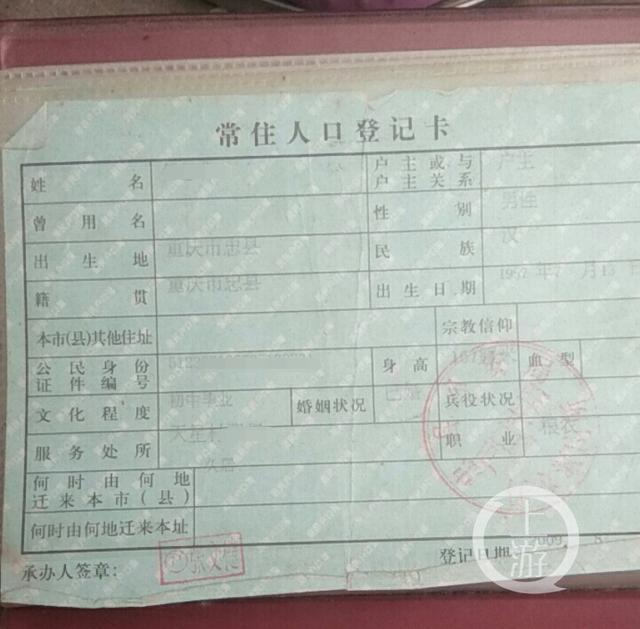 常住人口登记卡
姓名
户主或与户主关系 户主
曾用名
性别 男性
出生地 重庆市忠县
民族 汉
籍贯 重庆市忠县
出生日期 1957年7月13日
本市(县)其他住址
宗教信仰
公民身份证件编号
身高
血型
文化程度 初中毕业
婚姻状况 已婚
兵役状况
服务处所
职业 粮农
何时由何地迁来本市(县) 久居
何时由何地迁来本址
承办人签章:
登记日期
上游